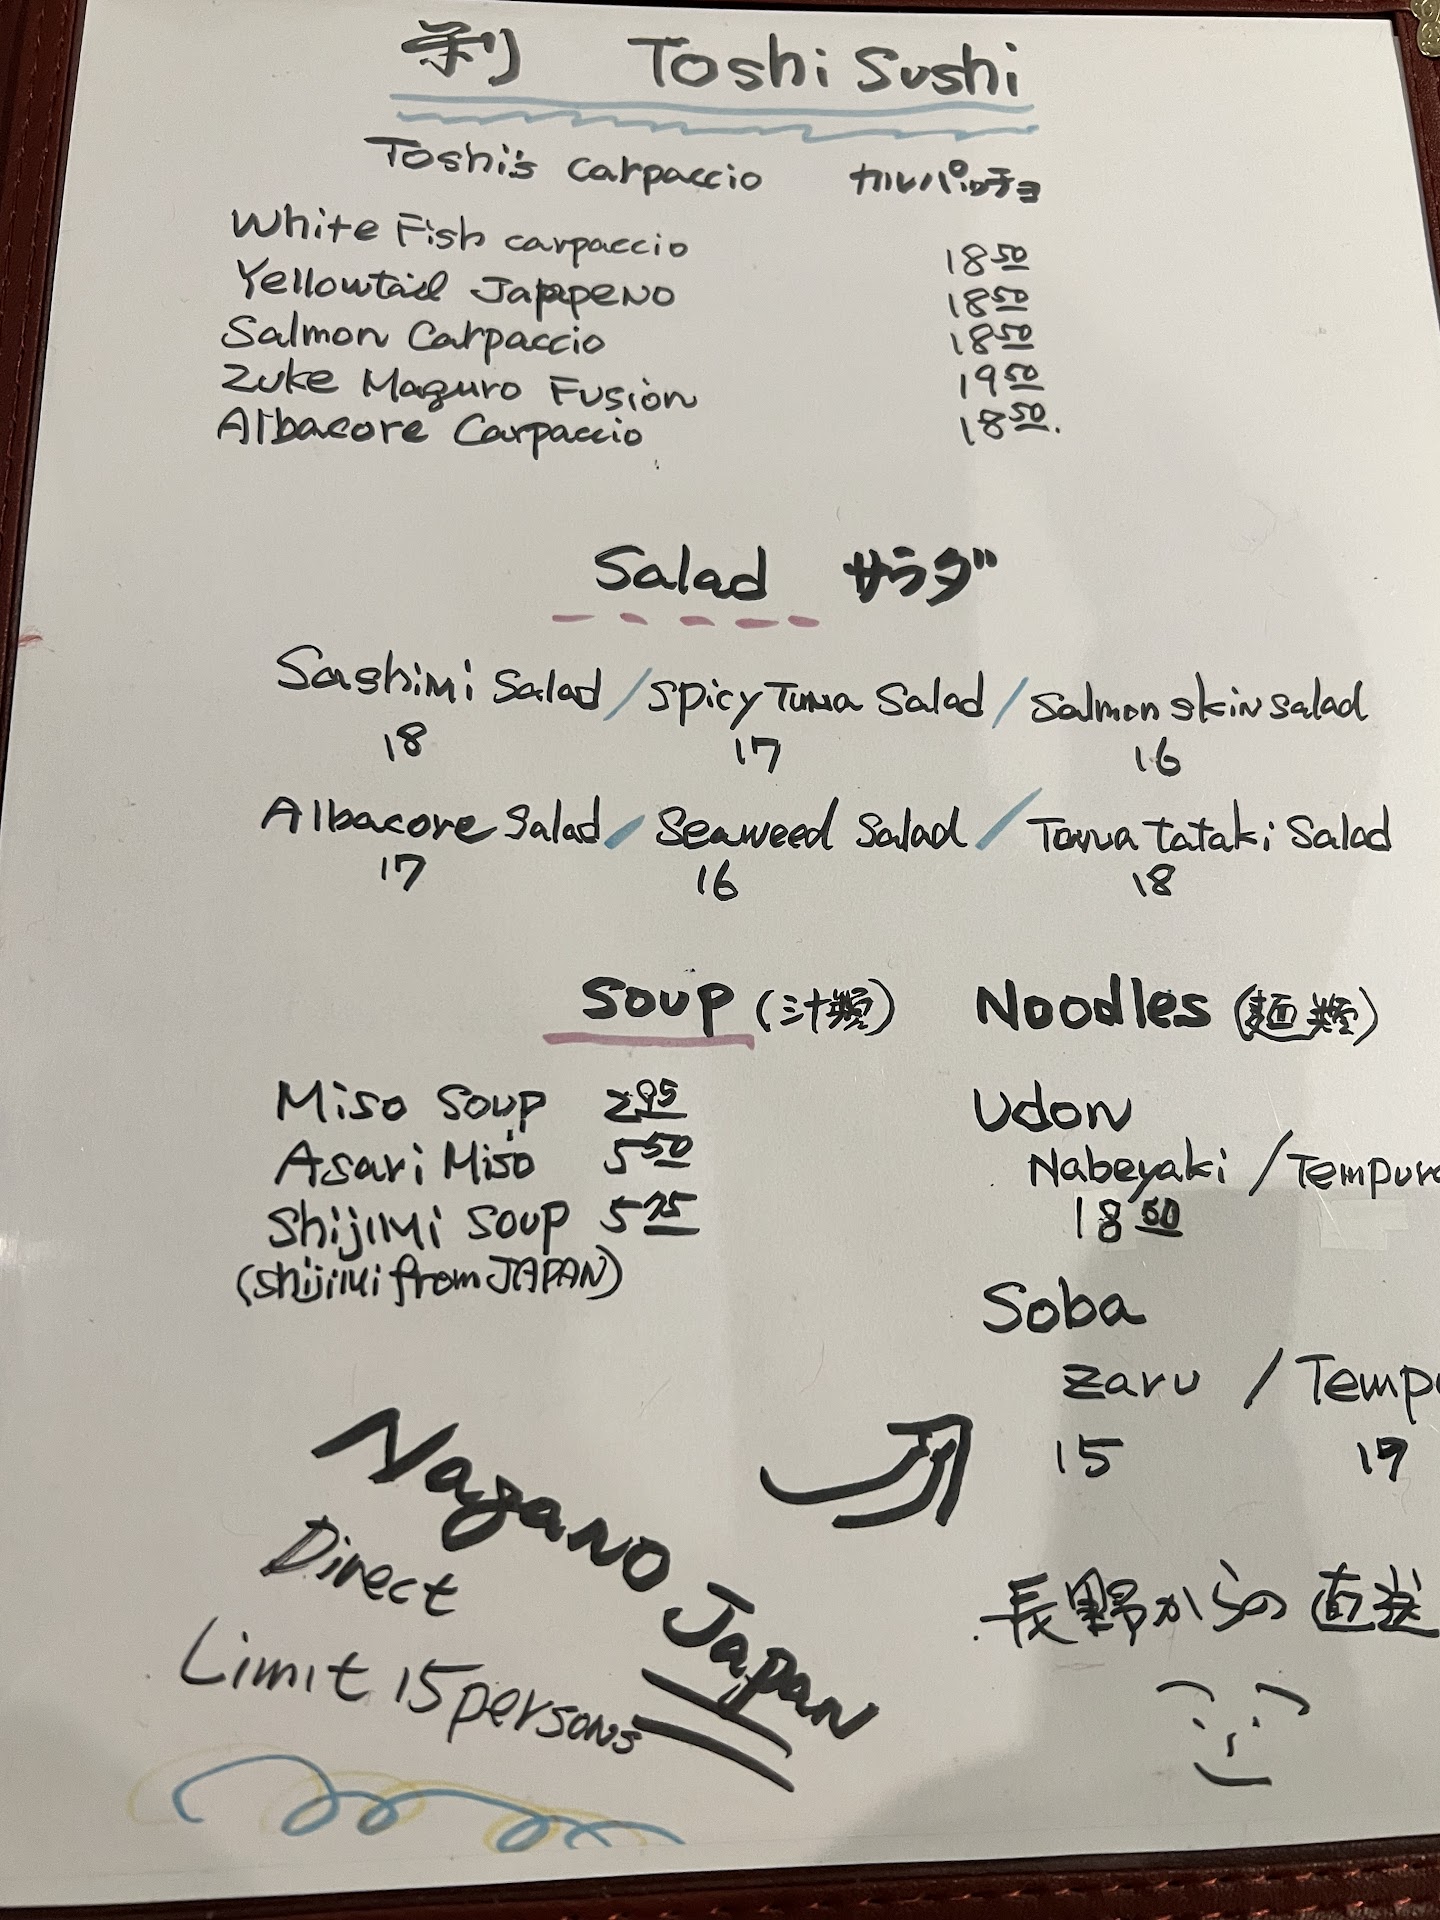 利 Toshi Sushi
Toshi's Carpaccio カルパッチョ
White Fish carpaccio 18 50
Yellowtail Jappeno 18 50
Salmon Carpaccio 18 50
Zuke Maguro Fusion 19 50
Albacore Carpaccio 18 50.
Salad サラダ
Sashimi Salad / Spicy Tuna Salad / Salmon skin salad
18 17 16
Albacore Salad / Seaweed Salad / Tuna tataki Salad
17 16 18
Soup (汁類)
Miso Soup 2 95
Asari Miso 5 50
Shijimi Soup 5 75
(Shijimi from JAPAN)
Noodles (麺類)
Udon
Nabeyaki / Tempura
18 50
Soba
Zaru / Temp
15 19
Nagano Japan
Direct
Limit 15 persons
長野からの直送